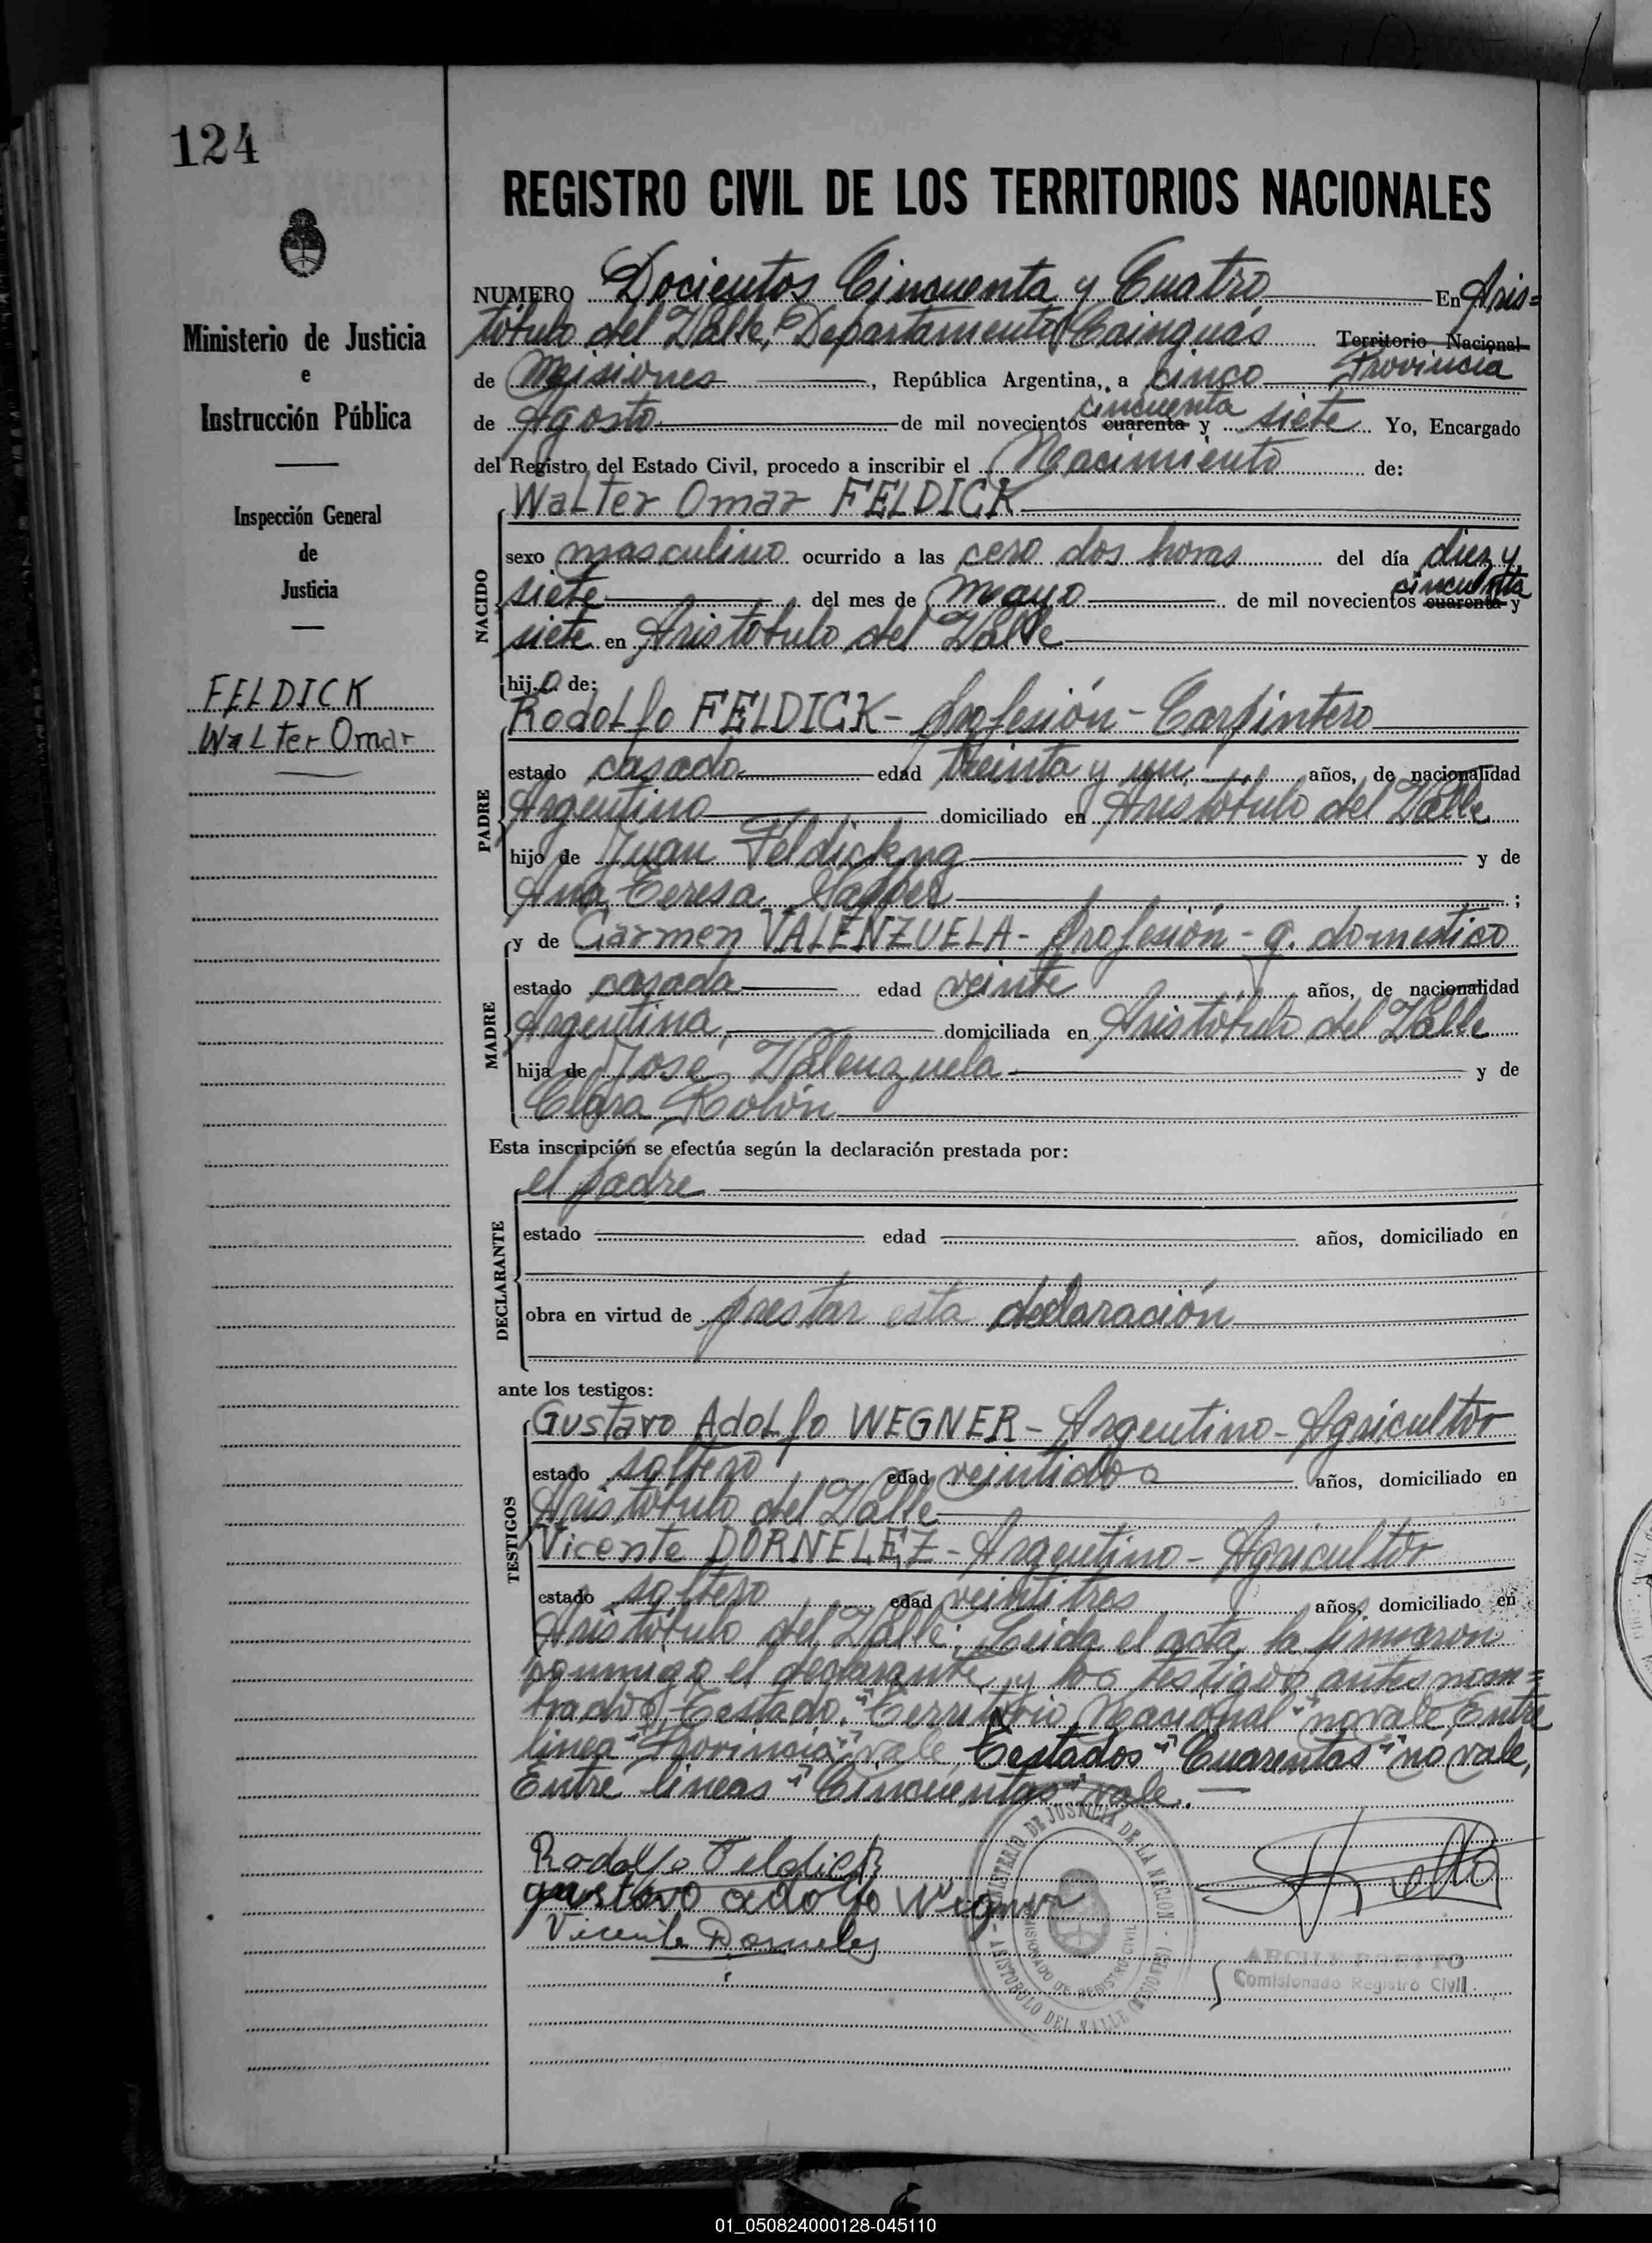 124
REGISTRO CIVIL DE LOS TERRITORIOS NACIONALES
Ministerio de Justicia
e
Instrucción Pública
Inspección General
de
Justicia
FELDICK
Walter Omar
NUMERO Docientos Cincuenta y Cuatro En Aris=
tóbulo del Valle, Departamento Cainguás Territorio Nacional
Provincia
de Misiones, República Argentina, a cinco
cincuenta
de Agosto de mil novecientos cuarenta y siete Yo, Encargado
del Registro del Estado Civil, procedo a inscribir el Nacimiento de:
NACIDO
Walter Omar FELDICK
sexo masculino ocurrido a las cero dos horas del día diez y
cincuenta
siete del mes de mayo de mil novecientos cuarenta y
siete en Aristóbulo del Valle
hijo de:
PADRE
Rodolfo FELDICK - profesión - Carpintero
estado casado edad treinta y un años, de nacionalidad
Argentino domiciliado en Aristóbulo del Valle
hijo de Juan Feldickng y de
Ana Teresa ;
MADRE
y de Carmen VALENZUELA - profesión - q. domestico
estado casada edad veinte años, de nacionalidad
Argentina domiciliada en Aristóbulo del Valle
hija de José Valenzuela y de
Clara Rolón
Esta inscripción se efectúa según la declaración prestada por:
DECLARANTE
el padre
estado edad años, domiciliado en
obra en virtud de prestar esta declaración
ante los testigos:
TESTIGOS
Gustavo Adolfo WEGNER - Argentino - Agricultor
estado soltero edad veintidos años, domiciliado en
Aristóbulo del Valle
Vicente DORNELEZ - Argentino - Agricultor
estado soltero edad veintitres años, domiciliado en
Aristóbulo del Valle; Leida el acta, la firmaron
conmigo el declarante y los testigos antes nom=
brados Testado: "Territorio Nacional" no vale, Entre
linea "Provincia" vale Testados "Cuarentas" no vale,
Entre lineas "Cincuentas" vale.
Rodolfo Feldick
gustavo adolfo Wegner
Vicente Dorneles
MINISTERIO DE JUSTICIA DE LA NACION
COMISIONADO DE REGISTRO CIVIL
ARISTOBULO DEL VALLE (MISIONES)
Comisionado Registro Civil
01_050824000128-045110